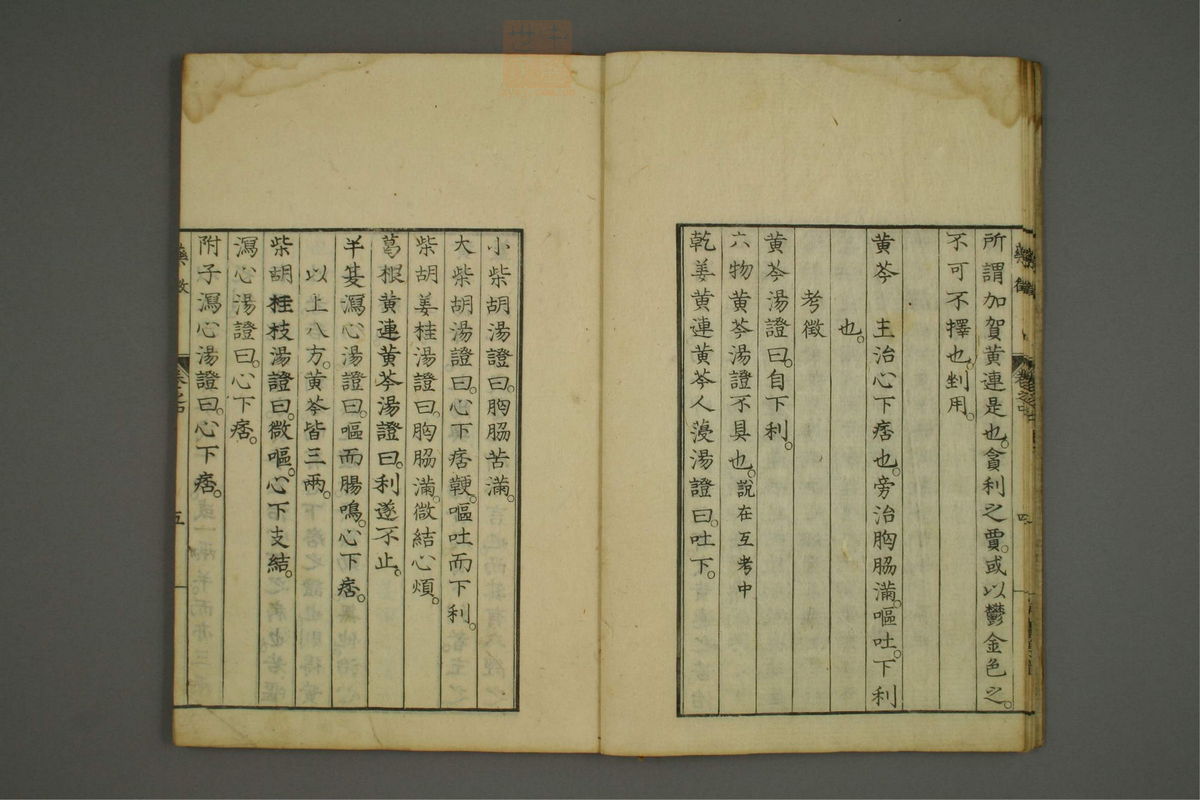 所謂加賀黄連是也。貪利之賈。或以鬱金色之。
不可不擇也。剉用。
黄芩　主治心下痞也。旁治胸脇滿。嘔吐。下利
也。
考徵
黄芩湯證曰。自下利。
六物黄芩湯證不具也。說在互考中
乾姜黄連黄芩人薓湯證曰。吐下。
小柴胡湯證曰。胸脇苦滿。
大柴胡湯證曰。心下痞鞕。嘔吐而下利。
柴胡姜桂湯證曰。胸脇滿。微結心煩。
葛根黄連黄芩湯證曰。利遂不止。
半夏瀉心湯證曰。嘔而腸鳴。心下痞。
以上八方。黄芩皆三兩。
柴胡桂枝湯證曰。微嘔。心下支結。
瀉心湯證曰。心下痞。
附子瀉心湯證曰。心下痞。
藥徵
五